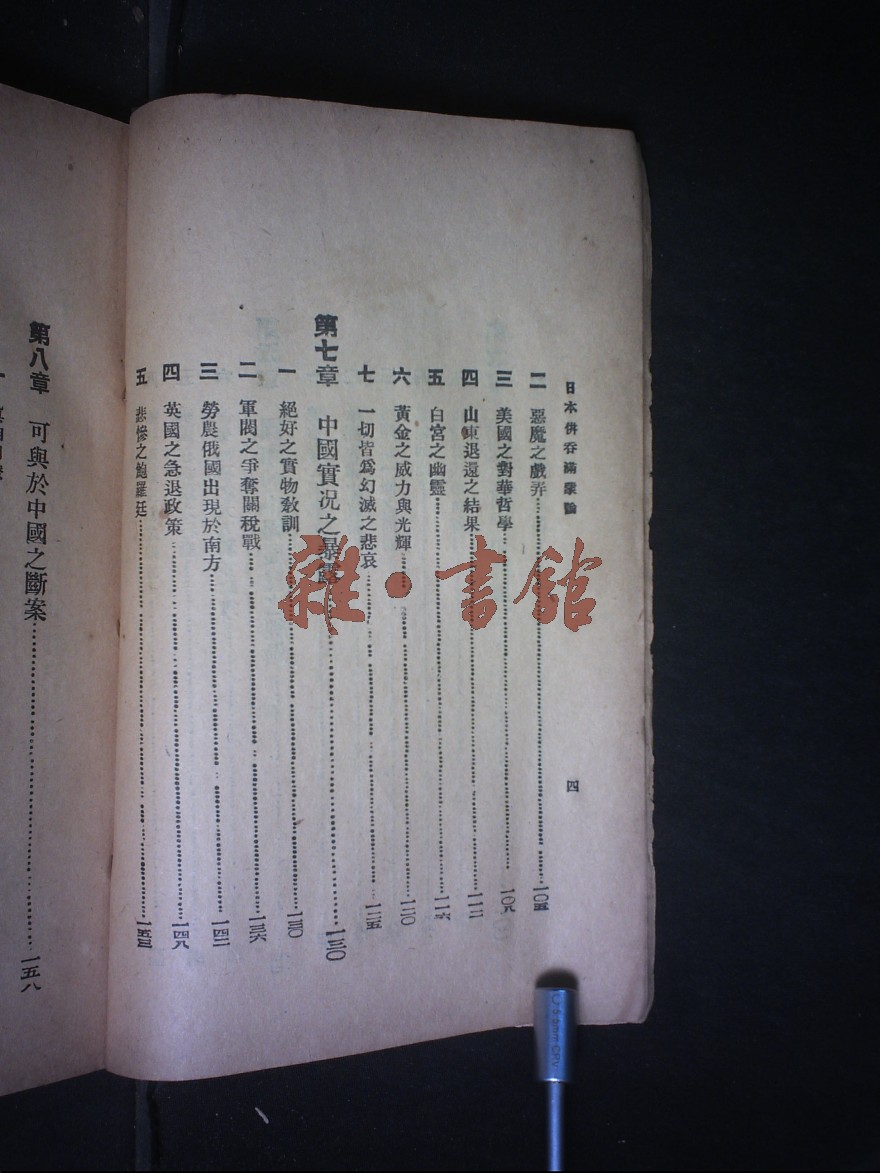 日本併吞滿蒙論
四
二 惡魔之戲弄……一〇五
三 美國之對華哲學……一〇八
四 山東退還之結果……一一二
五 白宮之幽靈……一一六
六 黃金之威力與光輝……一二〇
七 一切皆爲幻滅之悲哀……一二五
第七章 中國實況之暴露……一三〇
一 絕好之實物敎訓……一三〇
二 軍閥之爭奪關稅戰……一三六
三 勞農俄國出現於南方……一四二
四 英國之急退政策……一四八
五 悲慘之鮑羅廷……一五三
第八章 可與於中國之斷案……一五八
雜·書館
5.5mm CRV